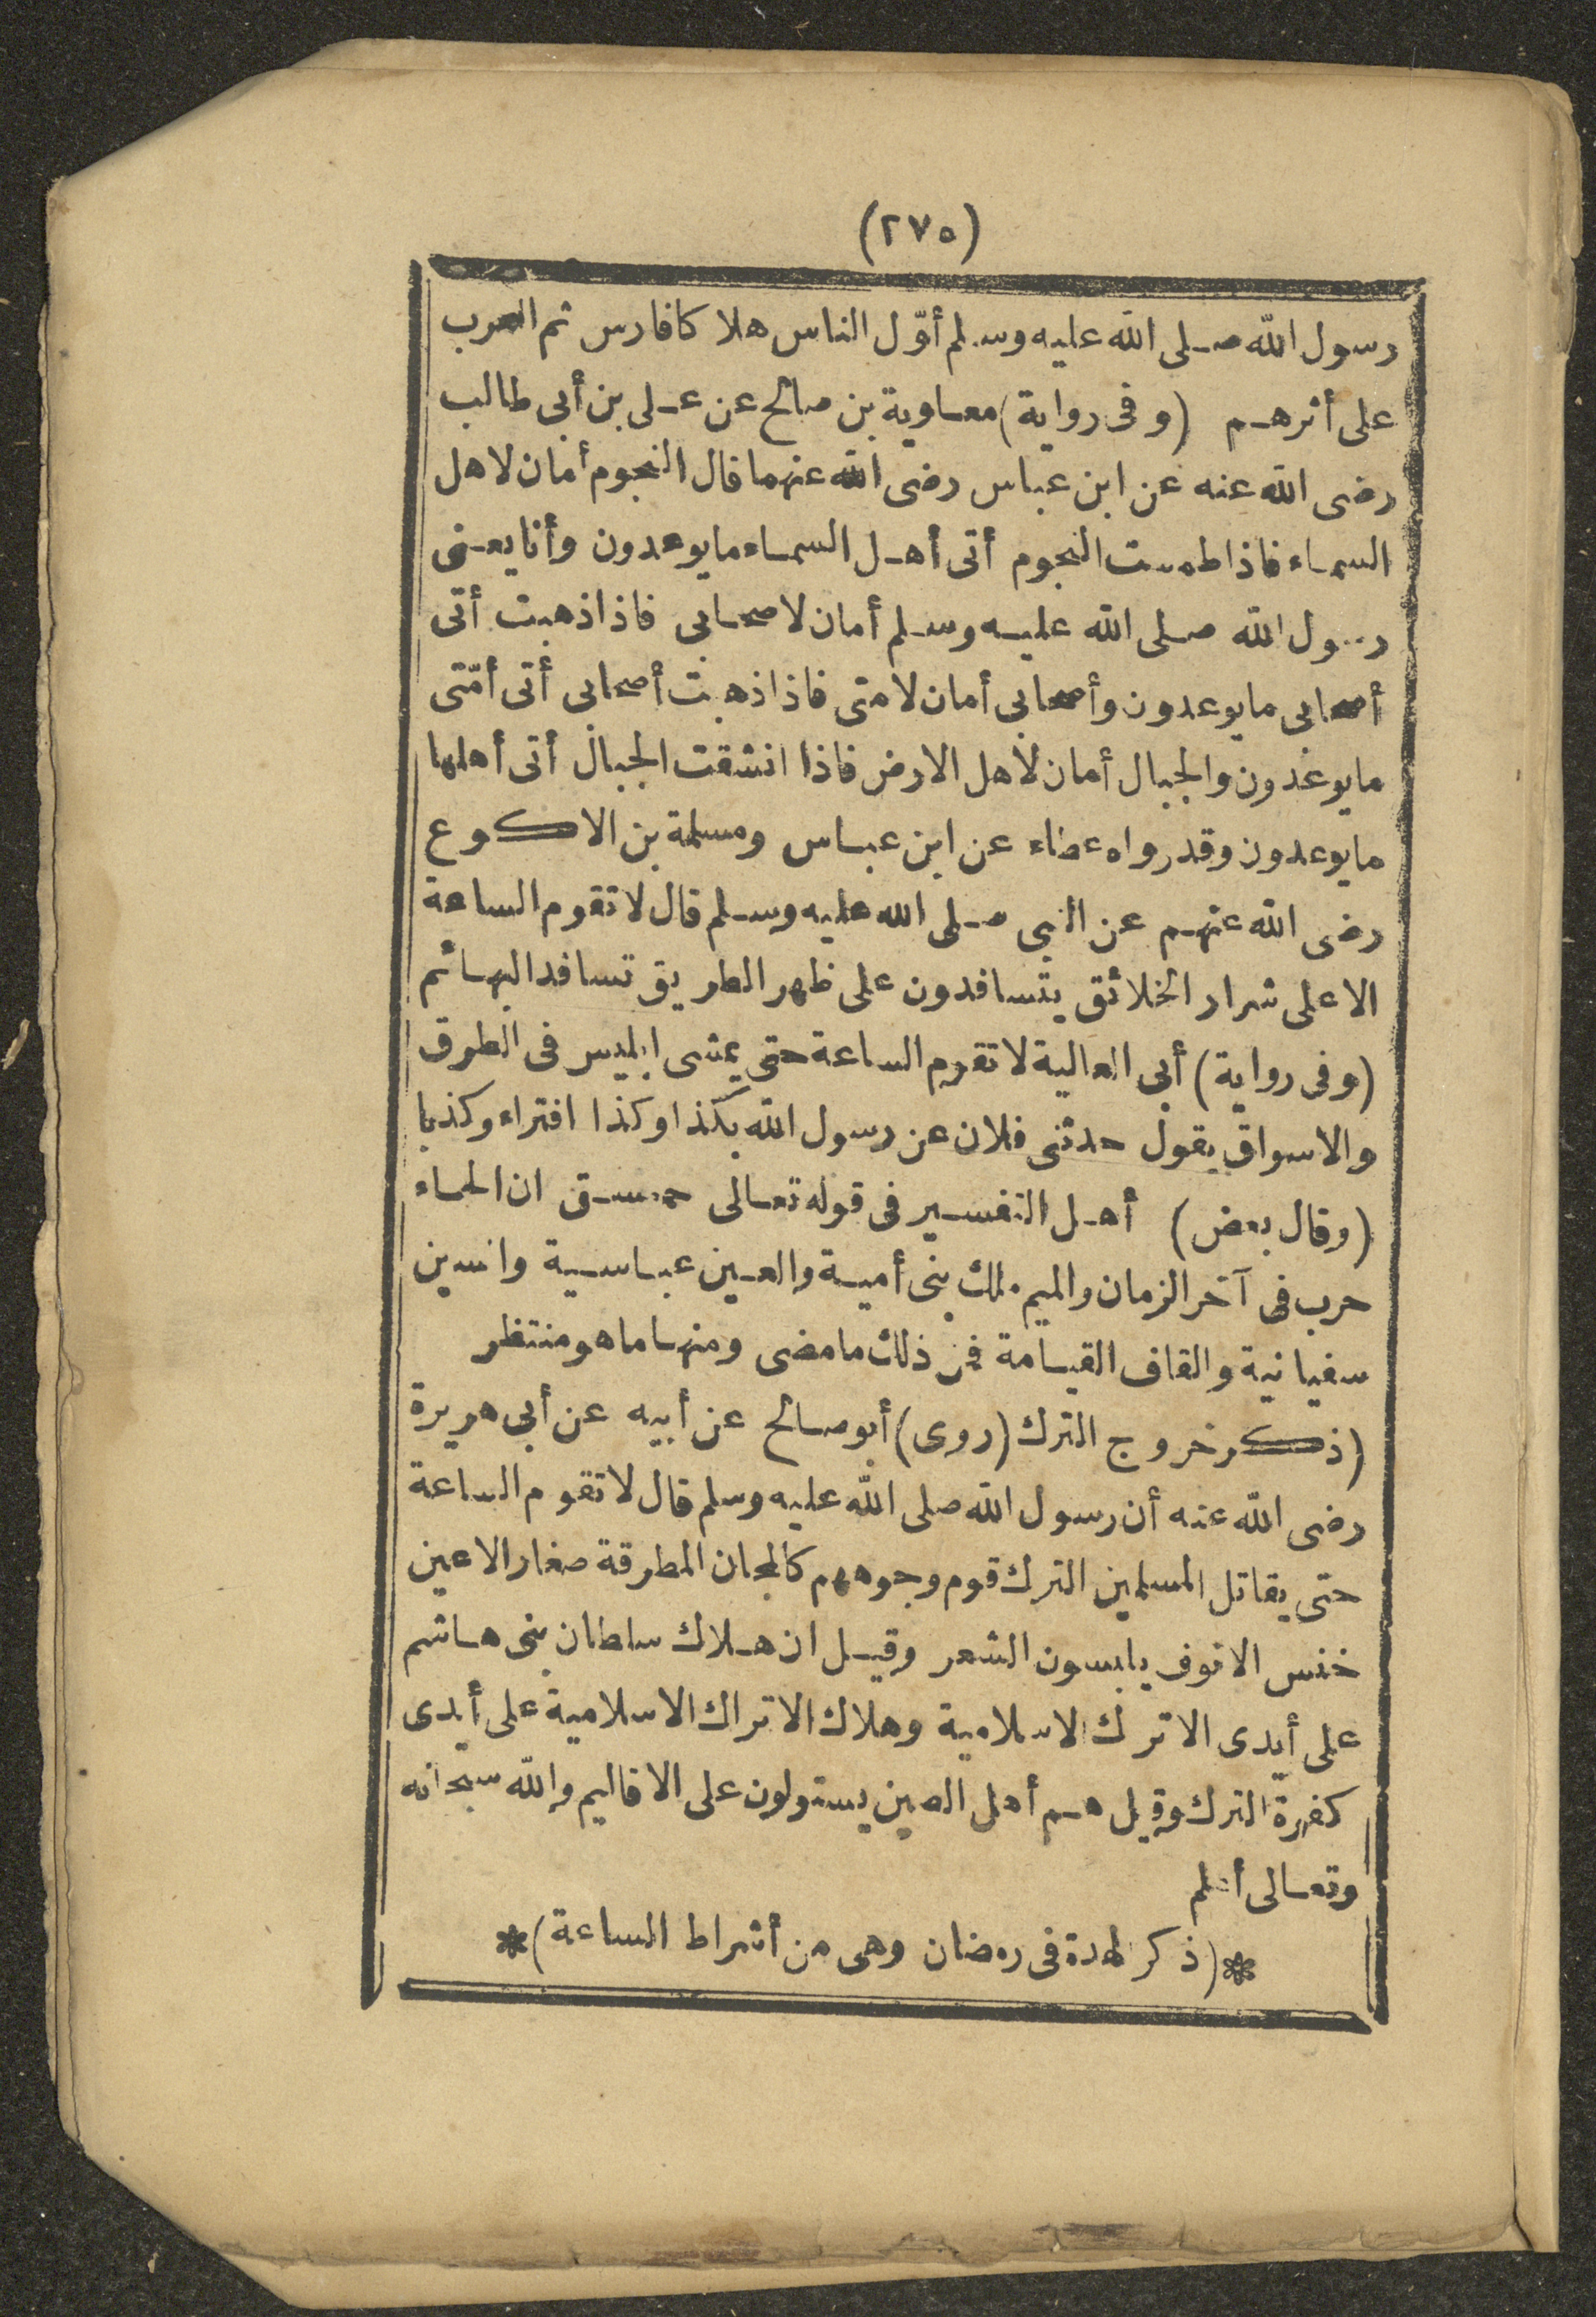 (٢٧٥)
رسول الله صلى الله عليه وسلم أوّل الناس هلاكا فارس ثم العرب
على أثرهم (وفى رواية) معاوية بن صالح عن على بن أبى طالب
رضى الله عنه عن ابن عباس رضى الله عنهما قال النجوم أمان لاهل
السماء فاذا طمست النجوم أتى أهل السماء ما يوعدون وأنا يعنى
رسول الله صلى الله عليه وسلم أمان لاصحابى فاذا ذهبت أتى
أصحابى ما يوعدون وأصحابى أمان لامتى فاذا ذهبت أصحابى أتى أمّتى
ما يوعدون والجبال أمان لاهل الارض فاذا انشقت الجبال أتى أهلها
ما يوعدون وقد رواه عطاء عن ابن عباس ومسلمة بن الاكوع
رضى الله عنهم عن النبى صلى الله عليه وسلم قال لا تقوم الساعة
الا على شرار الخلائق يتسافدون على ظهر الطريق تسافد البهائم
(وفى رواية) أبى العالية لا تقوم الساعة حتى يمشى ابليس فى الطرق
والاسواق يقول حدثنى فلان عن رسول الله بكذا وكذا افتراء وكذبا
(وقال بعض) أهل التفسير فى قوله تعالى حمسق ان الحاء
حرب فى آخر الزمان والميم ملك بنى أمية والعين عباسية والسين
سفيانية والقاف القيامة فمن ذلك ما مضى ومنها ما هو منتظر
(ذكر خروج الترك (روى) أبو صالح عن أبيه عن أبى هريرة
رضى الله عنه أن رسول الله صلى الله عليه وسلم قال لا تقوم الساعة
حتى يقاتل المسلمين الترك قوم وجوههم كالمجان المطرقة صغار الاعين
خنس الانوف يلبسون الشعر وقيل ان هلاك سلطان بنى هاشم
على أيدى الاترك الاسلامية وهلاك الاتراك الاسلامية على أيدى
كفرة الترك وقيل هم أهل الصين يستولون على الاقاليم والله سبحانه
وتعالى أعلم
*(ذكر لهدة فى رمضان وهى من أشراط الساعة)*